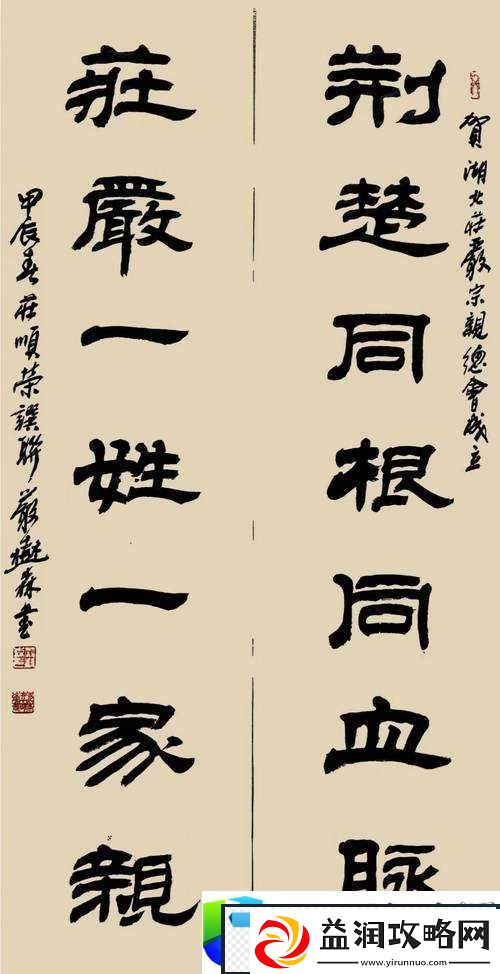 賀湖北莊嚴宗親總會成立
荆楚同根同血脉
莊嚴一姓一家親
甲辰春莊順榮譔聯嚴森書
益润攻略网
www.yirunnuo.com